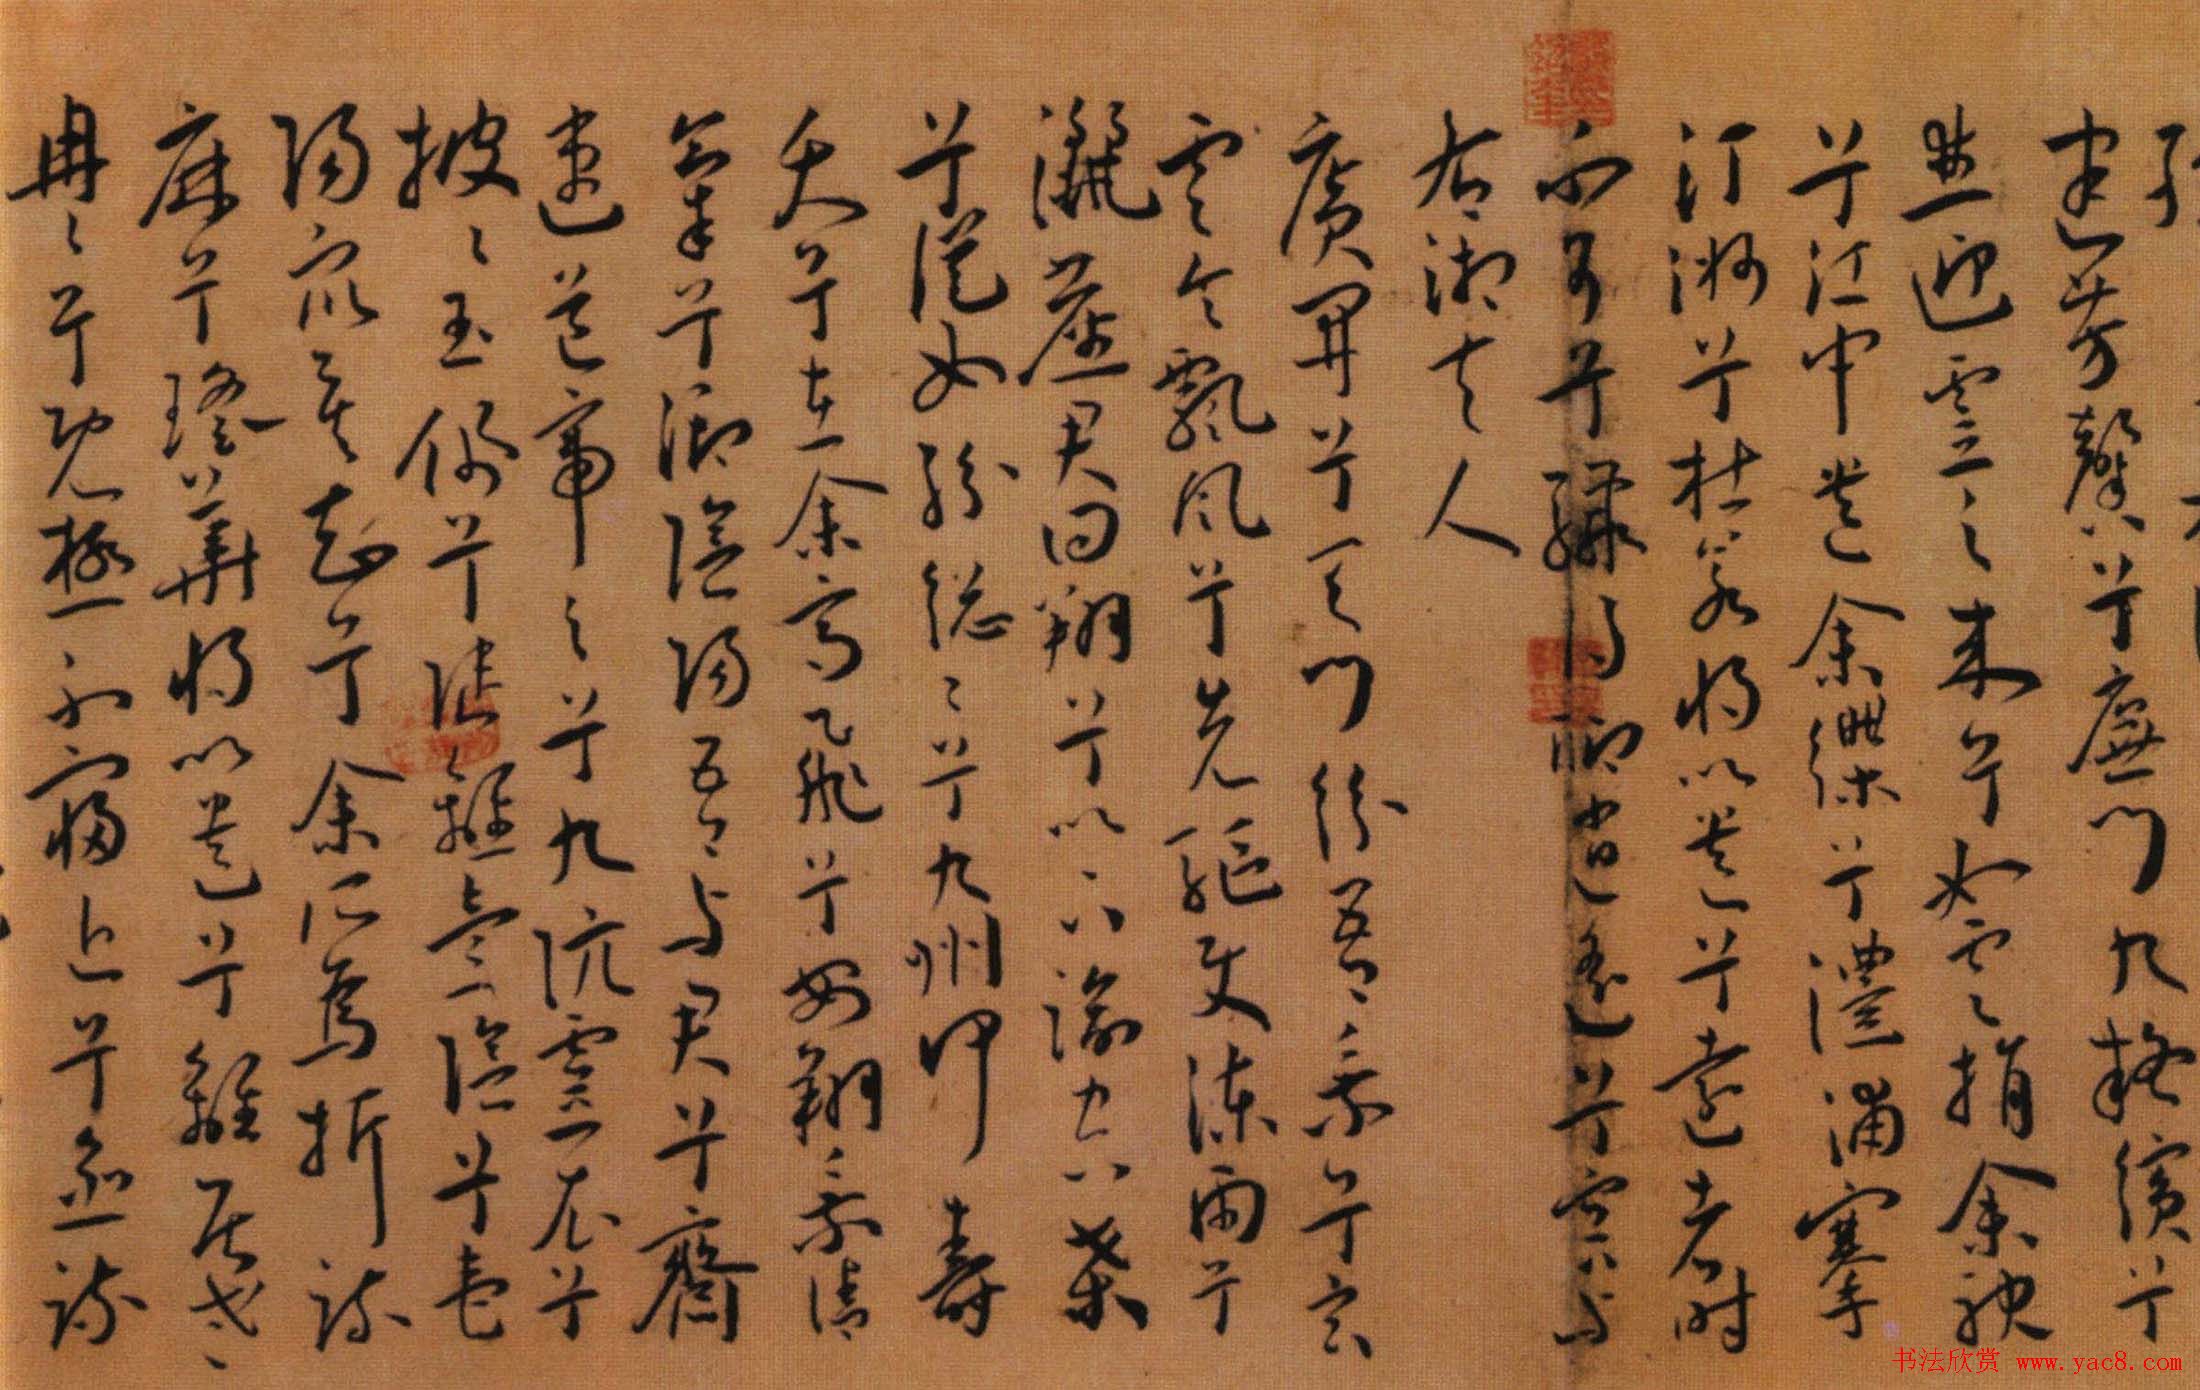 建芳馨兮廡門九嶷繽兮
並迎靈之來兮如雲捐余袂
兮江中遺余褋兮澧浦搴
汀洲兮杜若將以遺兮遠者時
不可兮驟得聊逍遙兮容與
右湘夫人
廣開兮天門紛吾乘兮玄
雲令飄風兮先驅使涷雨兮
灑塵君回翔兮以下踰空桑
兮從女紛總〻兮九州何壽
夭兮在余高飛兮安翔乘清
氣兮御陰陽吾與君兮齋
速道帝之兮九坑靈衣兮
披〻玉佩兮陸離壹陰兮壹
陽衆莫知兮余所爲折疏
麻兮瑤華將以遺兮離居老
冉〻兮既極不寖近兮愈疏
书法欣赏 www.yac8.com